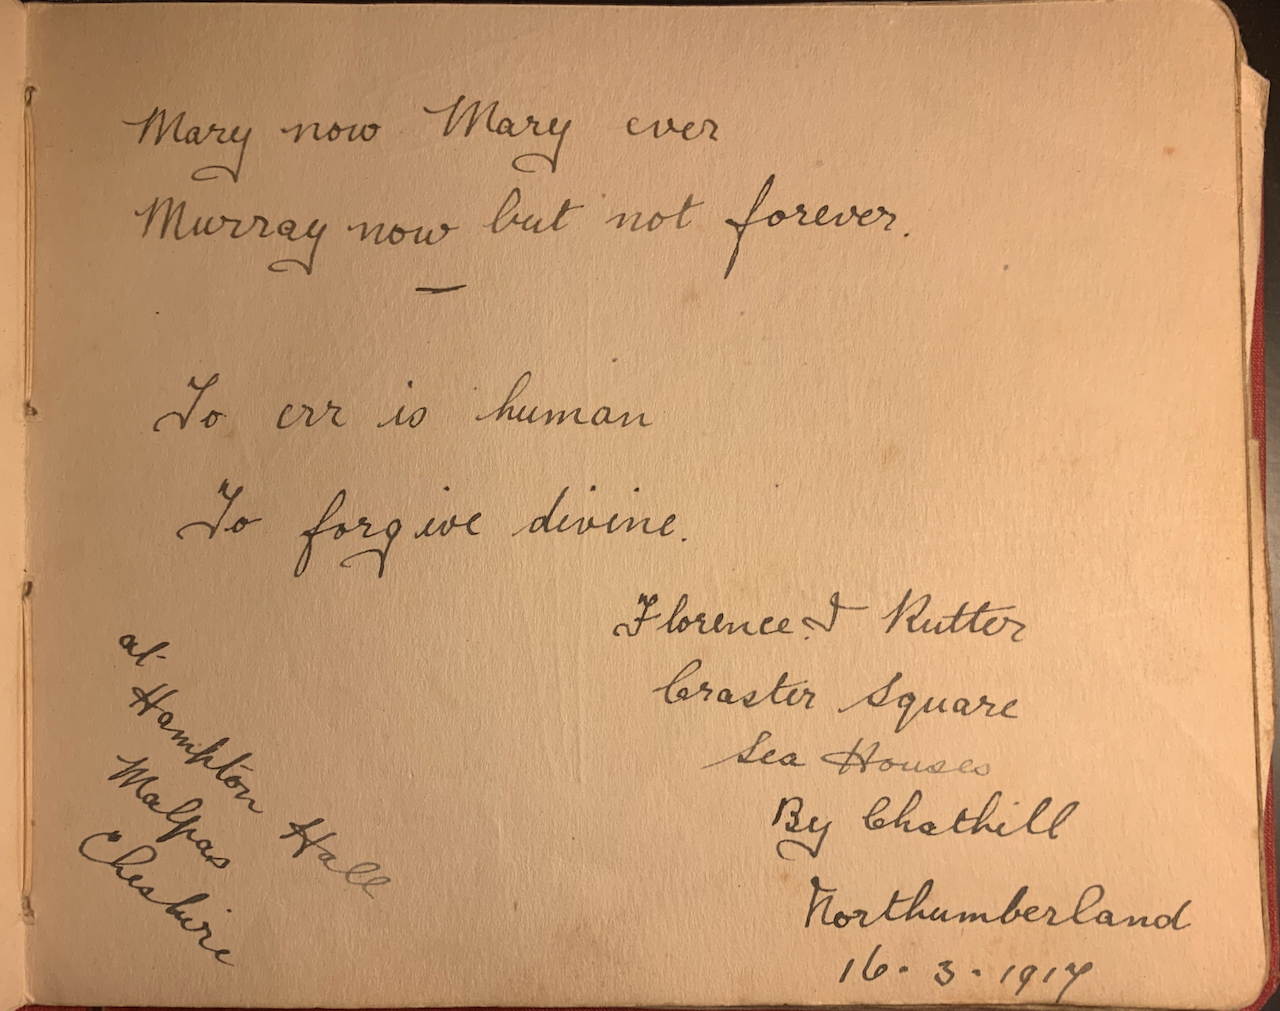 Mary now Mary ever
Murray now but not forever.
To err is human
To forgive divine.
Florence. I Rutter
Craster Square
Sea Houses
By Chathill
Northumberland
16. 3. 1917
at
Hampton Hall
Malpas
Cheshire